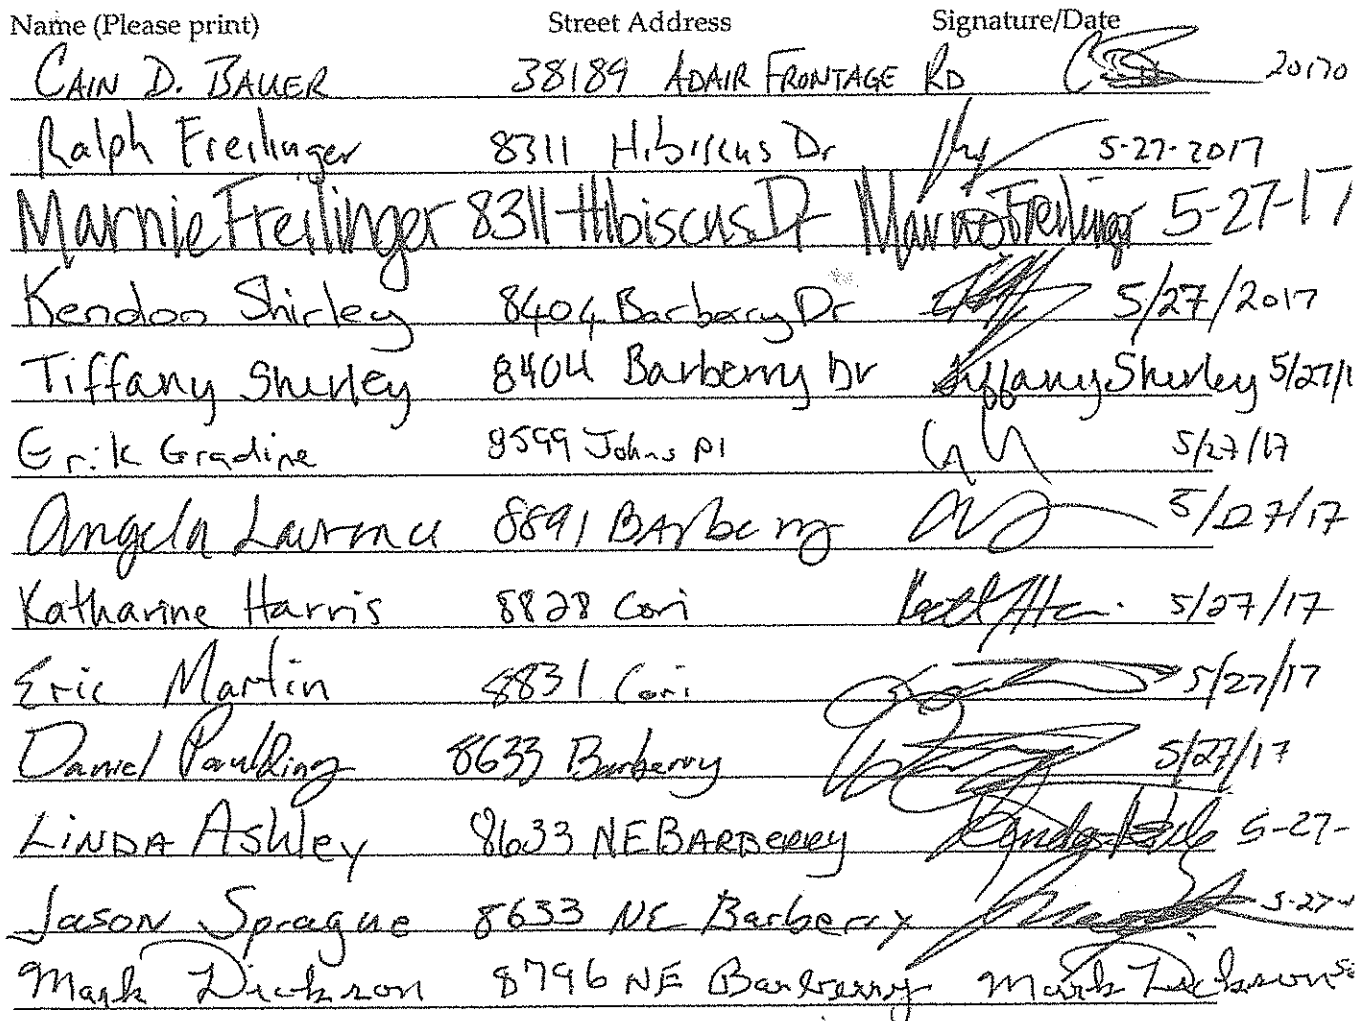 Name (Please print) Street Address Signature/Date
CAIN D. BAUER 38189 ADAIR FRONTAGE RD 20170
Ralph Freilinger 8311 Hibiscus Dr 5-27-2017
Marnie Freilinger 8311 Hibiscus Dr Marnie Freilinger 5-27-17
Kendoo Shirley 8404 Barberry Dr 5/27/2017
Tiffany Shirley 8404 Barberry Dr Tiffany Shirley 5/27/1
Erik Gradine 8599 Johns Pl 5/27/17
Angela Laurence 8891 BArberry 5/27/17
Katharine Harris 8828 Cori 5/27/17
Eric Martin 8831 Cori 5/27/17
Daniel Paulding 8633 Barberry 5/27/17
LiNDA AShley 8633 NE BARBERRY 5-27-
Jason Sprague 8633 NE Barberry 5-27-
Mark Dickson 8796 NE Barberry Mark Dickson